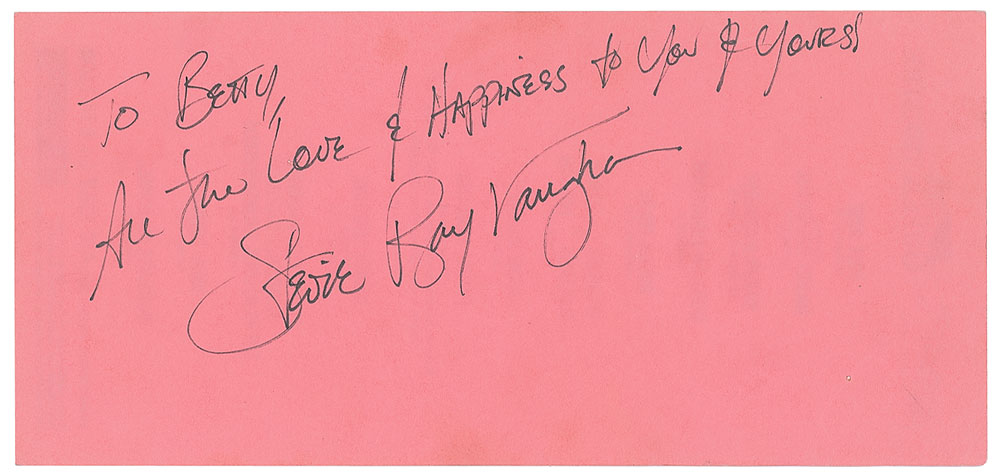 To Betty,
All the Love & Happiness to You & Yours!
Stevie Ray Vaughan